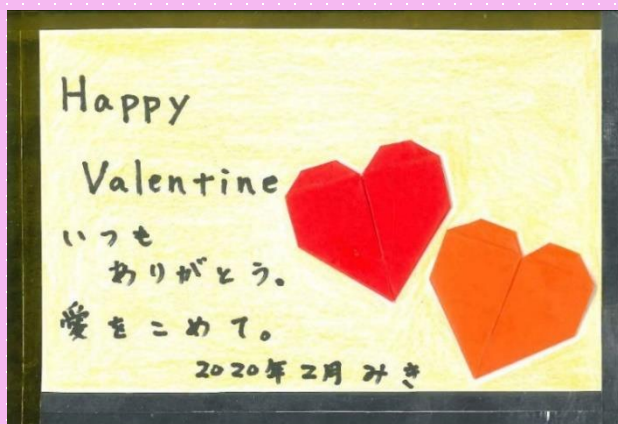 Happy
Valentine
いつも
ありがとう。
愛をこめて。
2020年2月 みき